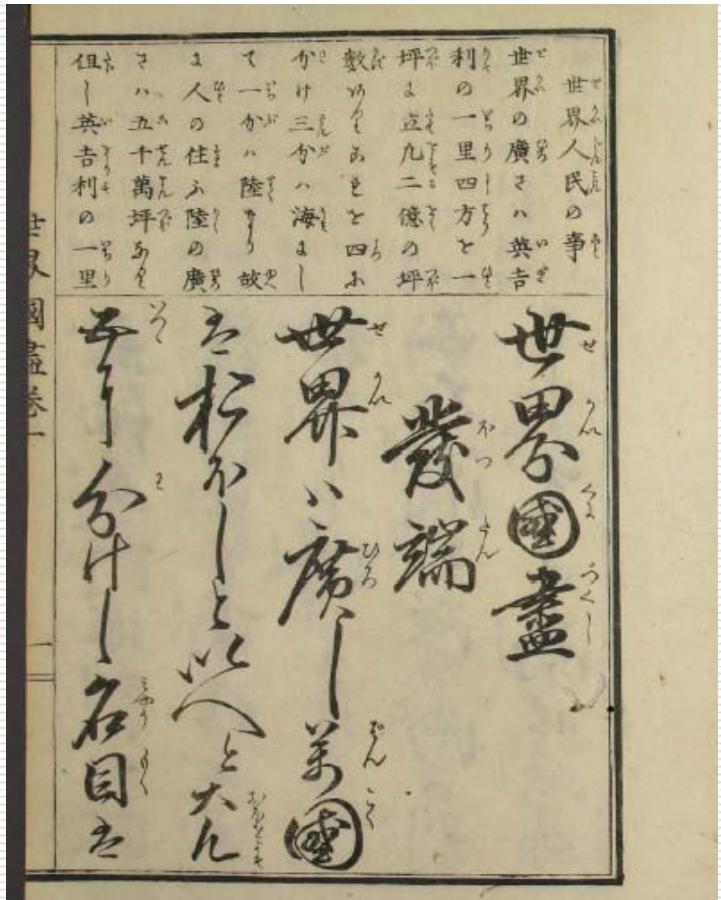 世界人民の事
世界の廣さハ英吉
利の一里四方を一
坪に立凡二億の坪
數なりこれを四に
分け三分ハ海にし
て一分ハ陸なり故
に人の住ふ陸の廣
さハ五千萬坪なり
但し英吉利の一里
世界國盡
發端
世界ハ廣し萬國
は於ほしと以へと大凡
五に分けし名目は
世界國盡卷一
一